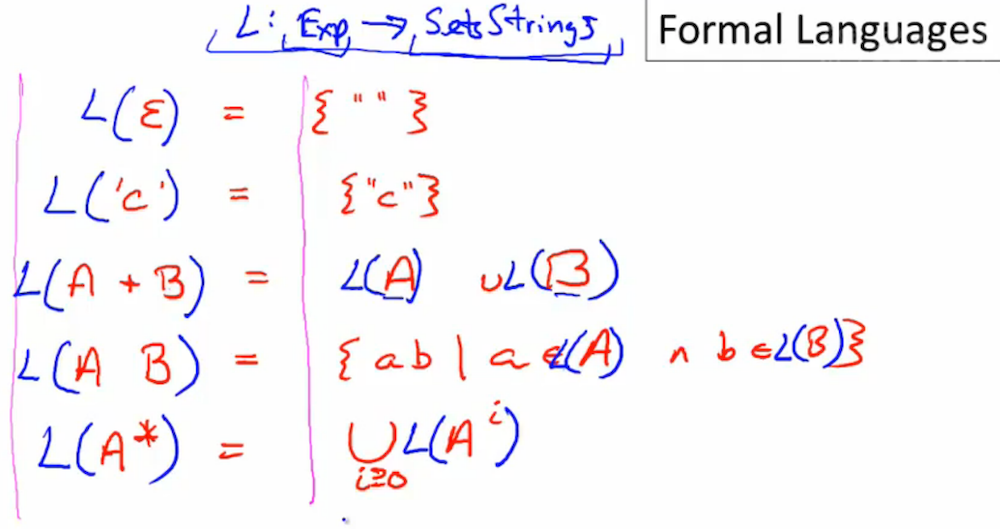 L: Exp → Sets Strings
Formal Languages
L(ε) = {" "}
L('c') = {"c"}
L(A + B) = L(A) ∪ L(B)
L(A B) = {ab | a ∈ L(A) ∧ b ∈ L(B)}
L(A*) = ⋃ L(Aⁱ)
i≥0